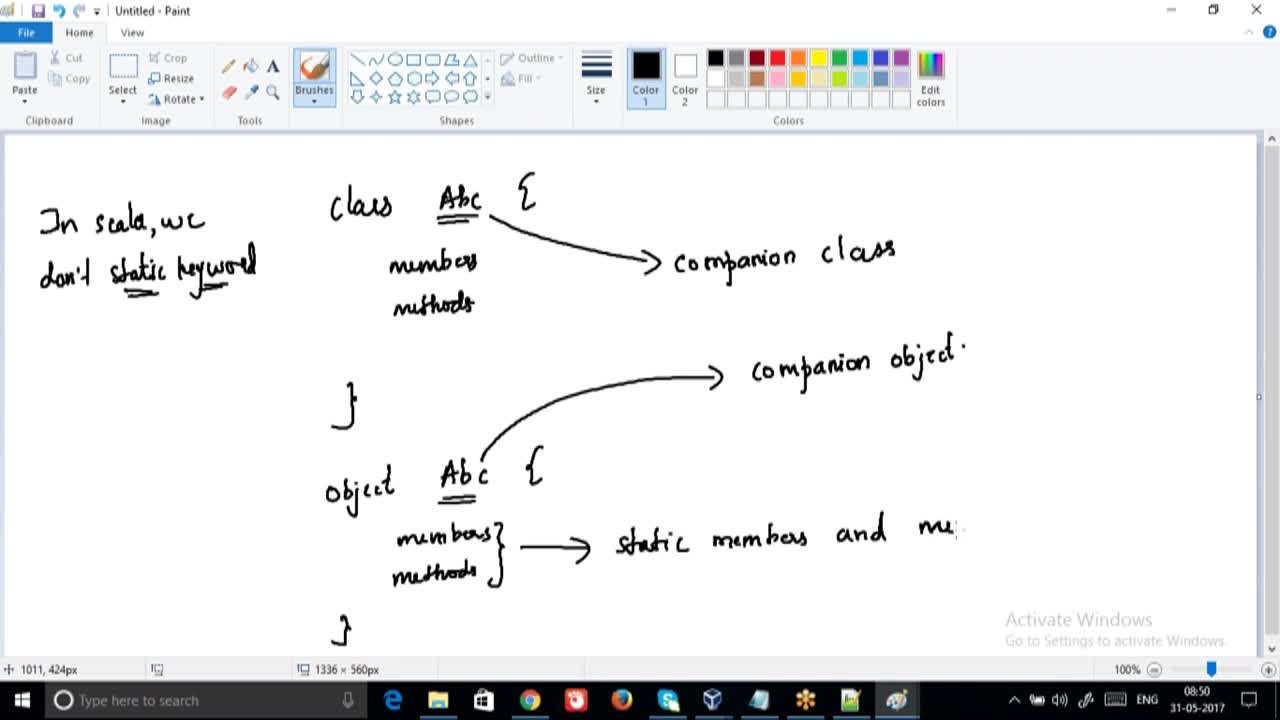 Untitled - Paint
File Home View
Paste
Cut
Copy
Clipboard
Select
Crop
Resize
Rotate
Image
Tools
Brushes
Shapes
Outline
Fill
Size
Color 1
Color 2
Edit colors
Colors
In scala, we
don't static keyword
class Abc {
members
methods
}
companion class
companion object.
object Abc {
members
methods
}
static members and me
Activate Windows
Go to Settings to activate Windows.
1011, 424px
1336 × 560px
100%
Type here to search
ENG
08:50
31-05-2017